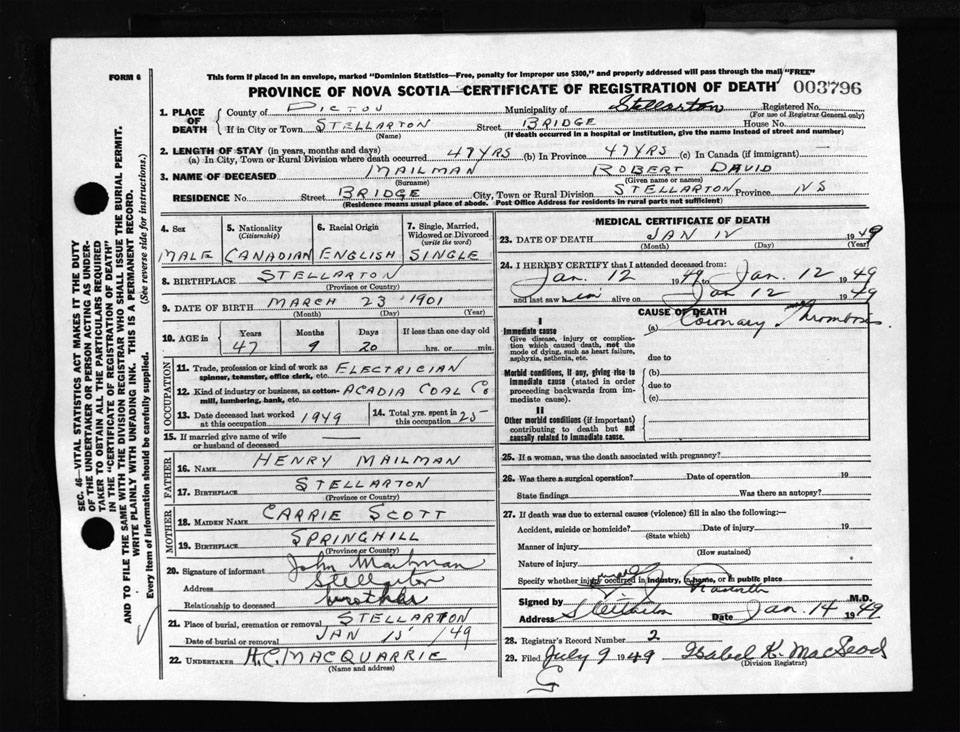 FORM 6
This form if placed in an envelope, marked "Dominion Statistics—Free, penalty for improper use $300," and properly addressed will pass through the mail "FREE"
PROVINCE OF NOVA SCOTIA—CERTIFICATE OF REGISTRATION OF DEATH 003796
1. PLACE OF DEATH County of PICTOU Municipality of Stellarton Registered No.
(For use of Registrar General only)
If in City or Town STELLARTON Street BRIDGE House No.
(Name) (If death occurred in a hospital or institution, give the name instead of street and number)
2. LENGTH OF STAY (in years, months and days)
(a) In City, Town or Rural Division where death occurred 47 YRS (b) In Province 47 YRS (c) In Canada (if immigrant)
3. NAME OF DECEASED MAILMAN ROBERT DAVID
(Surname) (Given name or names)
RESIDENCE No. Street BRIDGE City, Town or Rural Division STELLARTON Province N S
(Residence means usual place of abode. Post Office Address for residents in rural parts not sufficient)
4. Sex 5. Nationality (Citizenship) 6. Racial Origin 7. Single, Married, Widowed or Divorced (write the word)
MALE CANADIAN ENGLISH SINGLE
8. BIRTHPLACE STELLARTON
(Province or Country)
9. DATE OF BIRTH MARCH 23 1901
(Month) (Day) (Year)
10. AGE in Years Months Days If less than one day old
47 9 20 hrs. or min.
OCCUPATION
11. Trade, profession or kind of work as spinner, teamster, office clerk, etc. ELECTRICIAN
12. Kind of industry or business, as cotton-mill, lumbering, bank, etc. ACADIA COAL Co
13. Date deceased last worked at this occupation 1949 14. Total yrs. spent in this occupation 25
15. If married give name of wife or husband of deceased
FATHER
16. NAME HENRY MAILMAN
17. BIRTHPLACE STELLARTON
(Province or Country)
MOTHER
18. MAIDEN NAME CARRIE SCOTT
19. BIRTHPLACE SPRINGHILL
(Province or Country)
20. Signature of informant John Mailman
Address Stellarton
Relationship to deceased brother
21. Place of burial, cremation or removal STELLARTON
Date of burial or removal JAN 15 1949
22. UNDERTAKER H.C. MACQUARRIE
(Name and address)
MEDICAL CERTIFICATE OF DEATH
23. DATE OF DEATH JAN 12 1949
(Month) (Day) (Year)
24. I HEREBY CERTIFY that I attended deceased from:
Jan. 12 1949 to Jan. 12 1949
and last saw him alive on Jan 12 1949
CAUSE OF DEATH
I
Immediate cause (a) Coronary Thrombosis
Give disease, injury or complication which caused death, not the mode of dying, such as heart failure, asphyxia, asthenia, etc.
due to
Morbid conditions, if any, giving rise to immediate cause (stated in order proceeding backwards from immediate cause).
(b)
due to
(c)
II
Other morbid conditions (if important) contributing to death but not causally related to immediate cause.
25. If a woman, was the death associated with pregnancy?
26. Was there a surgical operation? Date of operation 19
State findings Was there an autopsy?
27. If death was due to external causes (violence) fill in also the following:—
Accident, suicide or homicide? Date of injury 19
(State which)
Manner of injury
(How sustained)
Nature of injury
Specify whether injury occurred in industry, in home, or in public place
Signed by M.D.
Address Stellarton Date Jan. 14 1949
28. Registrar's Record Number 2
29. Filed July 9 1949 Isabel K. MacLeod
(Division Registrar)
SEC. 46—VITAL STATISTICS ACT MAKES IT THE DUTY
OF THE UNDERTAKER OR PERSON ACTING AS UNDER-
TAKER TO OBTAIN ALL THE PARTICULARS REQUIRED
IN THE "CERTIFICATE OF REGISTRATION OF DEATH"
AND TO FILE THE SAME WITH THE DIVISION REGISTRAR WHO SHALL ISSUE THE BURIAL PERMIT.
WRITE PLAINLY WITH UNFADING INK. THIS IS A PERMANENT RECORD.
Every item of information should be carefully supplied. (See reverse side for instructions.)